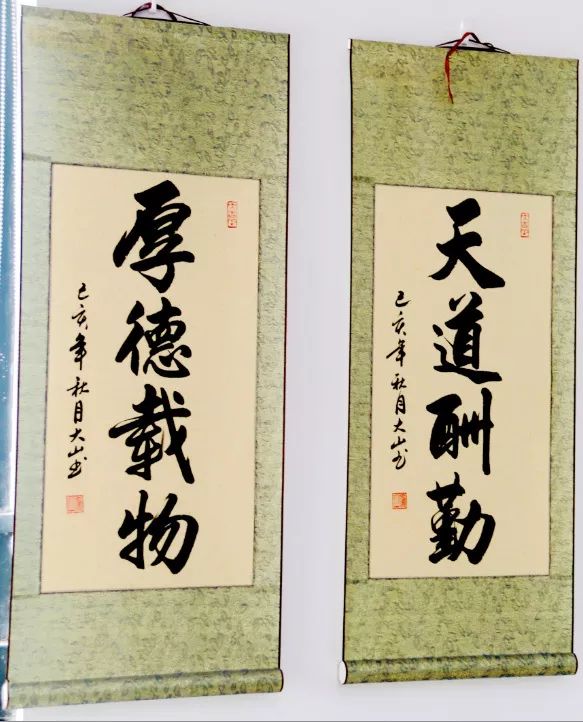 天道酬勤
己亥年秋月大山书
厚德载物
己亥年秋月大山书